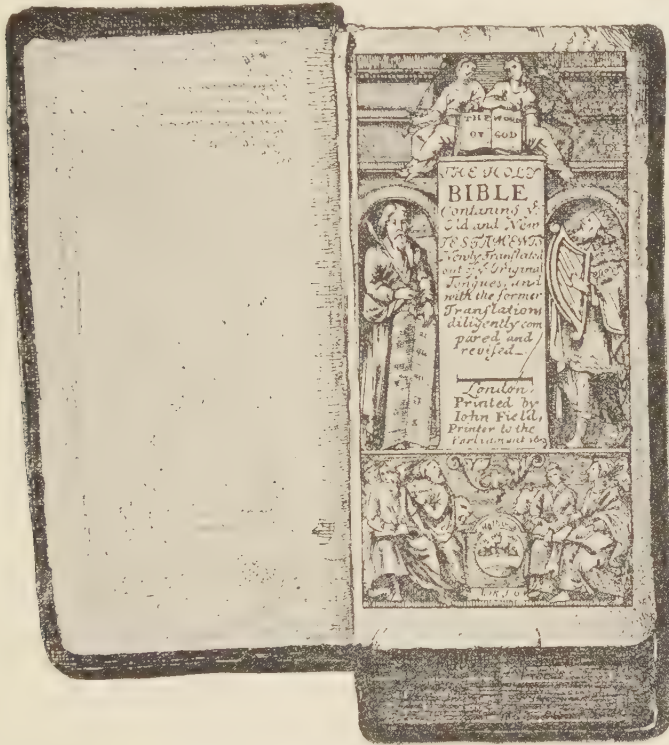 THE WORD
OF GOD
THE HOLY
BIBLE
Contaning yͤ
Old and New
TESTAMENTS
Newly Translated
out of yͤ Original
Tongues, and
with the former
Translations
diligently com
pared and
revised
London,
Printed by
Iohn Field,
Printer to the
Parliament